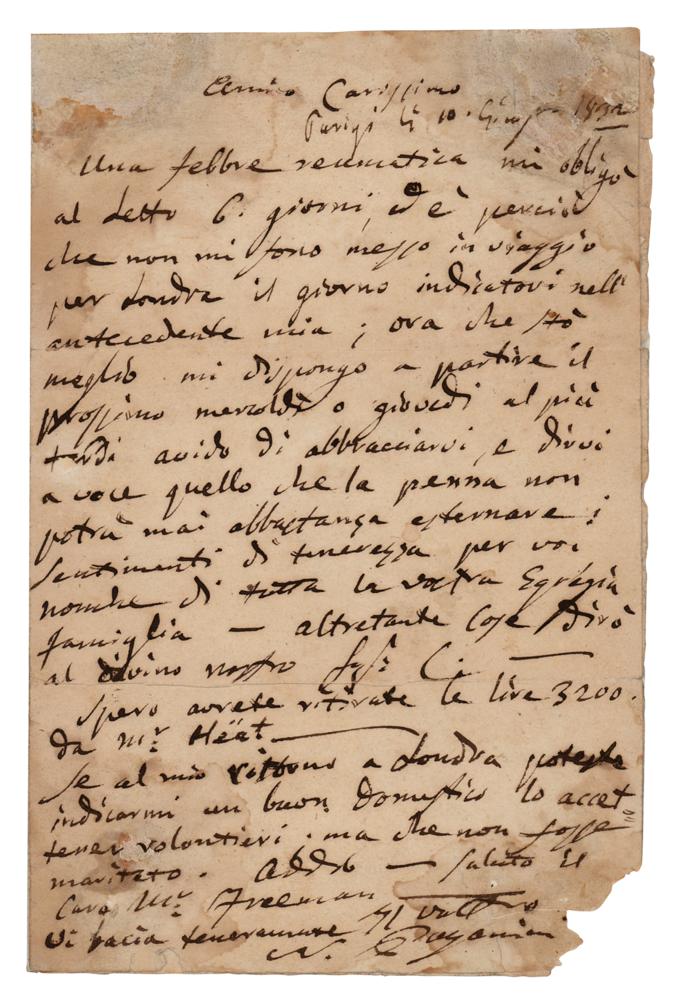 Amico Carissimo
Parigi li 10. Giugno 1832
Una febbre reumatica mi obligò
al Letto 6. giorni, ed è perciò
che non mi sono messo in viaggio
per Londra il giorno indicatovi nell'
antecedente mia ; ora che stò
meglio mi dispongo a partire il
prossimo mercoldì o giovedì al più
tardi avido di abbracciarvi, e dirvi
a voce quello che la penna non
potrà mai abbastanza esternare i
sentimenti di tenerezza per voi
nonche di tutta la vostra Egregia
famiglia — altretante cose dirò
al divino nostro C. —
Spero avrete ritirate le lire 3200.
da Mr. Heät —
Se al mio ritorno a Londra poteste
indicarmi un buon Domestico lo accet=
terei volontieri . ma che non fosse
maritato . addio — Saluto il
Caro Mr. Freeman — Il vostro
vi bacia teneramente
N. Paganini